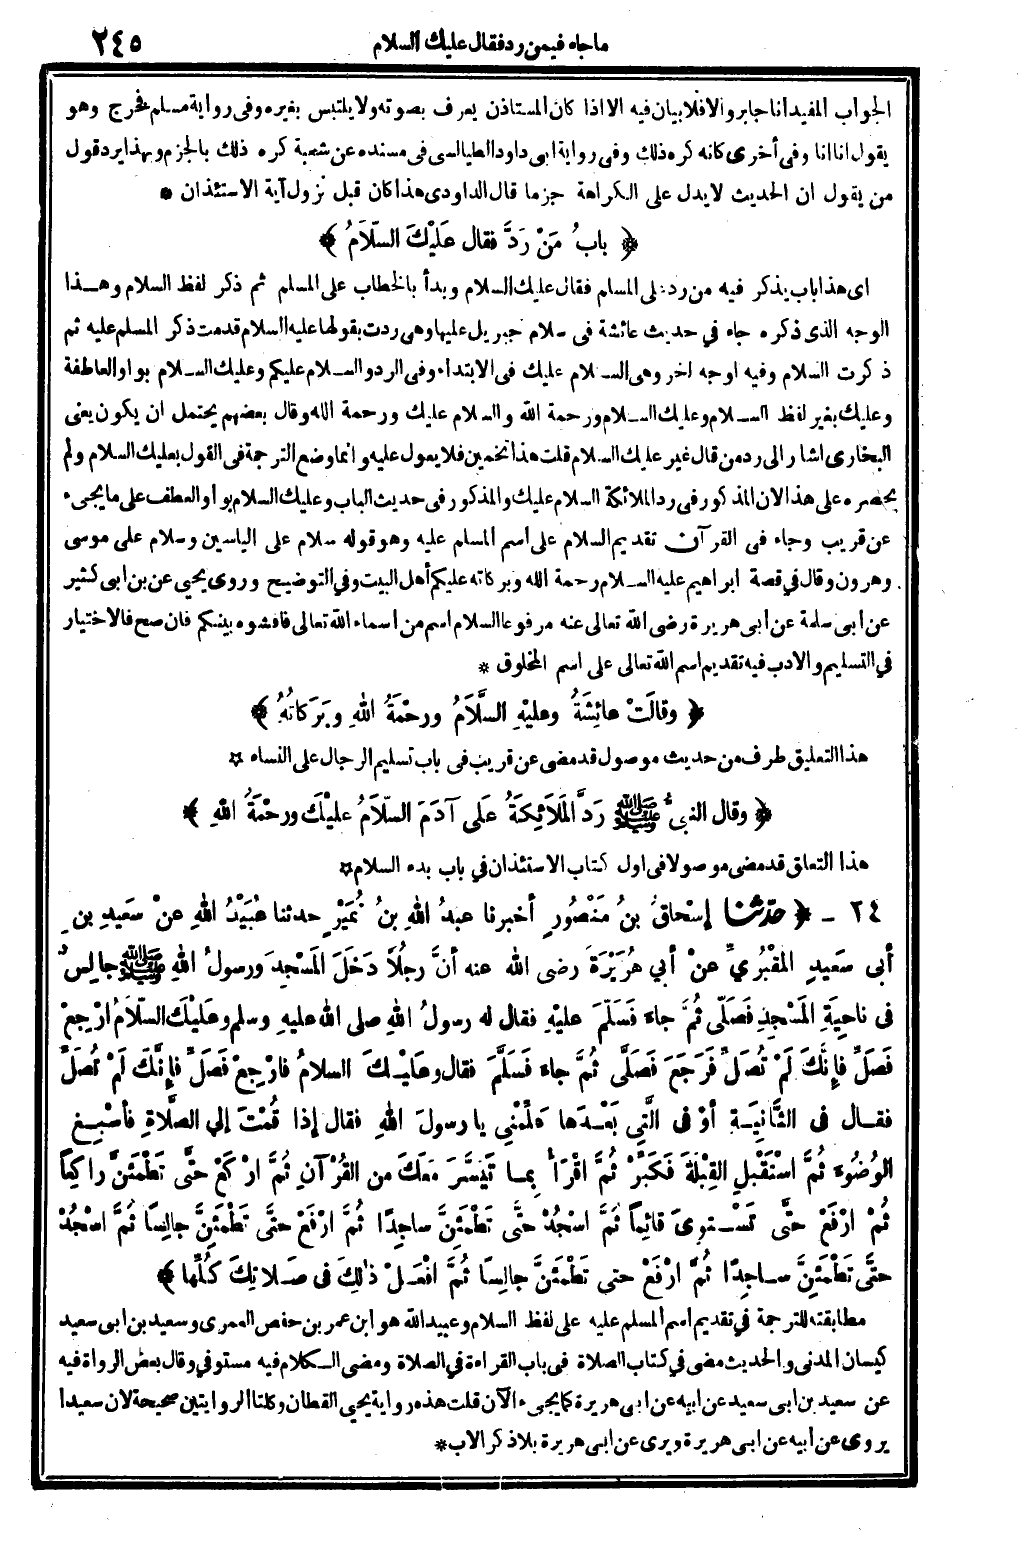 ما جاء فيمن رد فقال عليك السلام ٢٤٥
الجواب المفيد أنا جابر والا فلا بيان فيه الا اذا كان المستاذن يعرف بصوته ولا يلتبس بغيره وفى رواية مسلم فخرج وهو
يقول انا انا وفى أخرى كانه كره ذلك وفى رواية ابى داود الطيالسى فى مسنده عن شعبة كره ذلك بالجزم وبهذا يرد قول
من يقول ان الحديث لا يدل على الكراهة جزما قال الداودى هذا كان قبل نزول آية الاستئذان *
﴿ بابُ مَنْ رَدَّ فقال عَلَيْكَ السّلَامُ ﴾
اى هذا باب يذكر فيه من رد على المسلم فقال عليك السلام وبدأ بالخطاب على المسلم ثم ذكر لفظ السلام وهذا
الوجه الذى ذكره جاء في حديث عائشة فى سلام جبريل عليها وهى ردت بقولها عليه السلام قدمت ذكر المسلم عليه ثم
ذكرت السلام وفيه اوجه اخر وهى السلام عليك فى الابتداء وفى الرد والسلام عليكم وعليك السلام بواو العاطفة
وعليك بغير لفظ السلام وعليك السلام ورحمة الله والسلام عليك ورحمة الله وقال بعضهم يحتمل ان يكون يعنى
البخارى اشار الى رد من قال غير عليك السلام قلت هذا تخمين فلا يعول عليه وانما وضع الترجمة فى القول بعليك السلام ولم
يحصره على هذا لان المذكور فى رد الملائكة السلام عليك والمذكور فى حديث الباب وعليك السلام بواو العطف على ما يجىء
عن قريب وجاء فى القرآن تقديم السلام على أسم المسلم عليه وهو قوله سلام على الياسين وسلام على موسى
وهرون وقال في قصة ابراهيم عليه السلام رحمة الله وبركاته عليكم أهل البيت وفي التوضيح وروى يحيى عن بن ابى كثير
عن أبى سلمة عن أبى هريرة رضى الله تعالى عنه مرفوعا السلام اسم من أسماء الله تعالى فافشوه بينكم فان صح فالاختيار
في التسليم والادب فيه تقديم اسم الله تعالى على اسم المخلوق *
﴿ وقالَتْ عائِشَةُ وعليْهِ السَّلَامُ ورحْمَةُ اللهِ وبَرَكاتُهُ ﴾
هذا التعليق طرف من حديث موصول قد مضى عن قريب فى باب تسليم الرجال على النساء ☆
﴿ وقال النبىُّ ﷺ رَدَّ المَلَائِكَةُ عَلَى آدَمَ السّلَامُ عليْكَ ورحْمَةُ اللهِ ﴾
هذا التعلق قد مضى موصولا فى اول كتاب الاستئذان في باب بدء السلام ☆
٢٤ - ﴿ حدّثنا إسْحاقُ بنُ مَنْصُورٍ أخبرنا عبدُ اللهِ بنُ نُمَيْرٍ حدثنا عُبَيْدُ اللهِ عنْ سَعِيدِ بنِ
أبى سَعِيدٍ المَقْبُرِيِّ عنْ أبي هُرَيْرَةَ رضى الله عنه أنَّ رجُلًا دَخَلَ المَسْجِدَ ورسولُ اللهِ ﷺ جالِسٌ
فى ناحِيَةِ المَسْجِدِ فَصَلّى ثُمَّ جاءَ فَسَلَّمَ عليْهِ فقال له رسولُ اللهِ صلى الله عليهِ وسلم وعليْكَ السلَامُ ارْجِعْ
فَصَلِّ فإنَّكَ لَمْ تُصَلِّ فَرَجَعَ فَصَلَّى ثُمَّ جاءَ فَسَلَّمَ فقال وعليْكَ السلامُ فارْجِعْ فَصَلِّ فإنَّكَ لَمْ تُصَلِّ
فقال فى الثّانِيَةِ أوْ فى الَّتِي بَعْدَها عَلِّمْنِي يا رسولَ اللهِ فقال إذا قُمْتَ إلى الصّلَاةِ فأسْبِغِ
الوُضُوءَ ثُمَّ اسْتَقْبِلِ القِبْلَةَ فَكَبِّرْ ثُمَّ اقْرَأْ بِما تَيَسَّرَ مَعَكَ من القُرْآنِ ثُمَّ ارْكَعْ حتَّى تَطْمَئِنَّ راكِعًا
ثُمَّ ارْفَعْ حتَّى تَسْتَوِىَ قائِمًا ثُمَّ اسْجُدْ حتَّى تَطْمَئِنَّ ساجِدًا ثُمَّ ارْفَعْ حتَّى تَطْمَئِنَّ جالِسًا ثُمَّ اسْجُدْ
حتَّى تَطْمَئِنَّ ساجِدًا ثُمَّ ارْفَعْ حتى تَطْمَئِنَّ جالِسًا ثُمَّ افْعَلْ ذٰلِكَ فى صَلاتِكَ كُلِّها ﴾
مطابقته للترجمة في تقديم اسم المسلم عليه على لفظ السلام وعبيد الله هو ابن عمر بن حفص العمرى وسعيد بن ابى سعيد
كيسان المدنى والحديث مضى في كتاب الصلاة فى باب القراءة في الصلاة ومضى الكلام فيه مستوفي وقال بعض الرواة فيه
عن سعيد بن ابى سعيد عن ابيه عن ابى هريرة كما يجىء الآن قلت هذه رواية يحيى القطان وكلتا الروايتين صحيحة لان سعيدا
يروى عن أبيه عن ابى هريرة ويرى عن ابى هريرة بلا ذكر الاب *